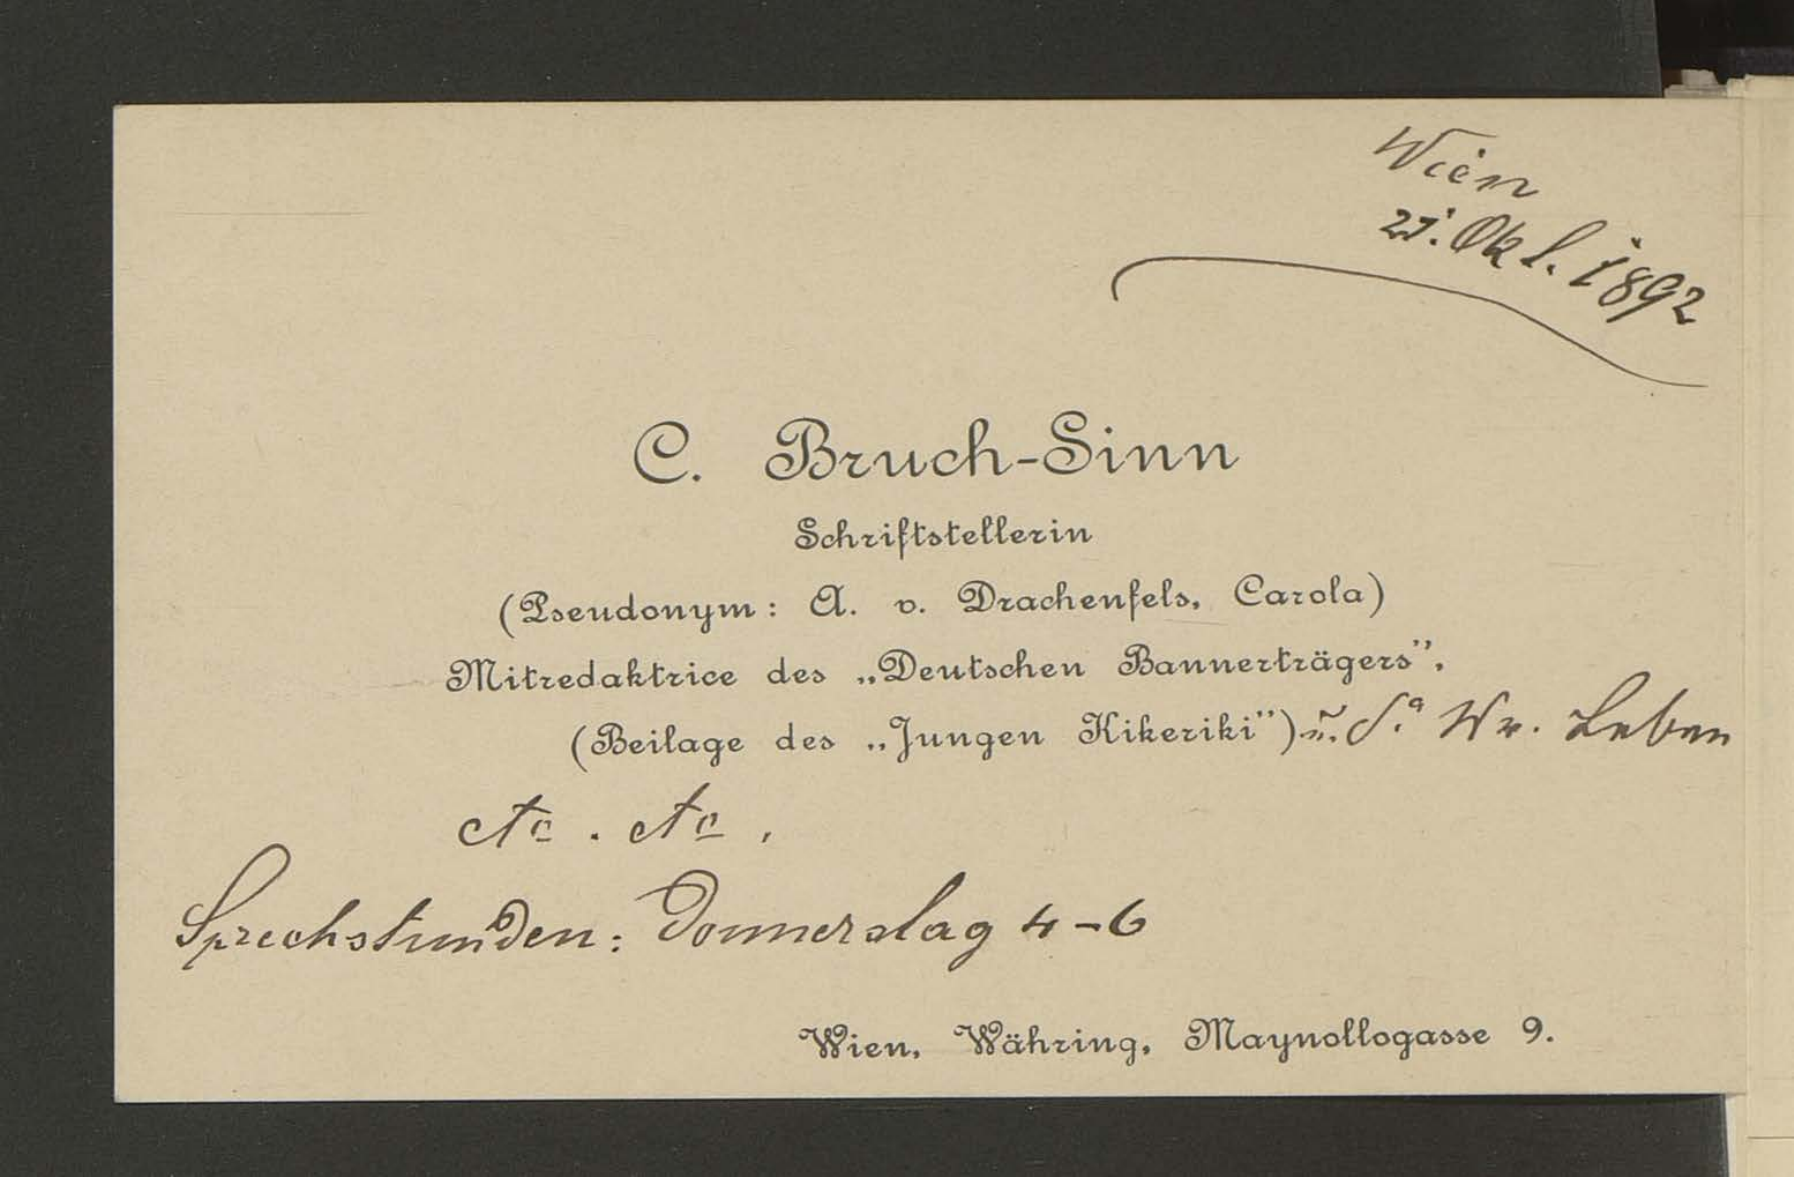 Wien
21. Okt. 1892
C. Bruch-Sinn
Schriftstellerin
(Pseudonym: A. v. Drachenfels, Carola)
Mitredaktrice des „Deutschen Bannerträgers”,
(Beilage des „Jungen Kikeriki”) u. Wr. Leben
etc. etc.
Sprechstunden: Donnerstag 4-6
Wien, Währing, Maynollogasse 9.